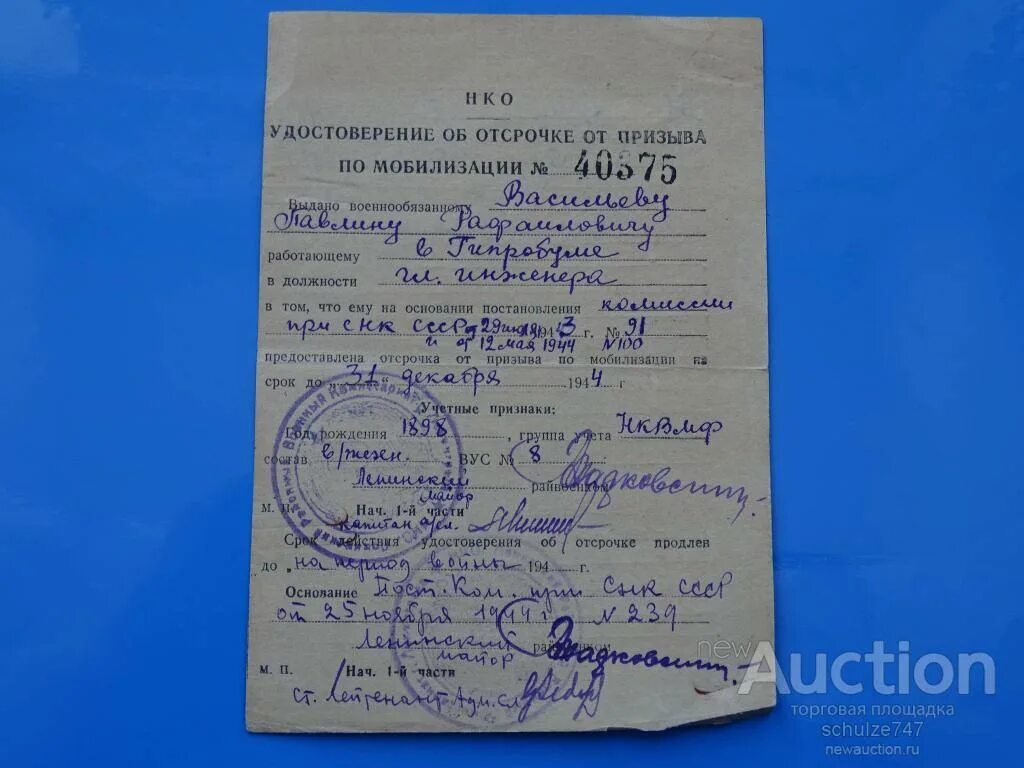 НКО
УДОСТОВЕРЕНИЕ ОБ ОТСРОЧКЕ ОТ ПРИЗЫВА
ПО МОБИЛИЗАЦИИ № 40375
Выдано военнообязанному Васильеву
Павлину Рафаиловичу
работающему в Гипробуме
в должности гл. инженера
в том, что ему на основании постановления комиссии
при СНК СССР 1943 г. № 91
и от 12 мая 1944 N 100
предоставлена отсрочка от призыва по мобилизации на
срок до „31“ декабря 1944 г
Учетные признаки:
Год рождения 1898, группа учета НКВМФ
состав ВУС № 8
Ленинский райвоенком
майор
М. П. Нач. 1-й части
капитан
Срок действия удостоверения об отсрочке продлен
до „на период войны 194 г.
Основание Пост. Ком. при СНК СССР
от 25 ноября 1944 г. N 239
Ленинский райвоенком
майор
М. П. Нач. 1-й части
Ст. Лейтенант Адм. сл.
newAuction
торговая площадка
schulze747
newauction.ru